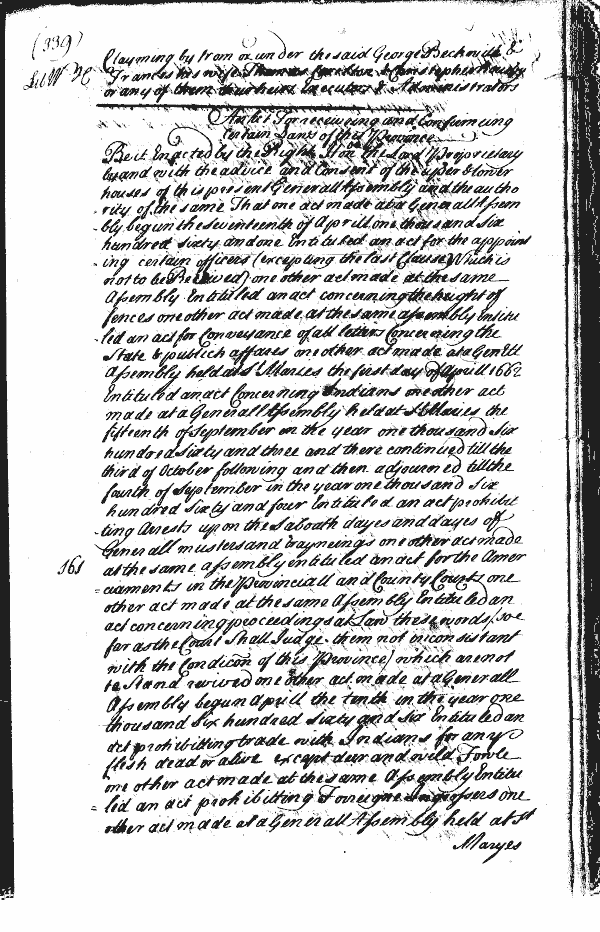 (339)
Lib W H
Clayming by from or under the said George Beckwith &
Frances his wife Thomas & Christopher
or any of them their heirs Executors & Administrators
An Act for receiveing and Confirming
Certain Laws of this Province
Be it Enacted by the Right Hon ble the Lord Proprietary
by and with the advice and Consent of the upper & lower
houses of this present Generall Assembly and the autho
rity of the same That one act made at a Generall Assem
bly begun the seventeenth of Aprill one thousand six
hundred sixty and one Entituled an act for the appoint
ing certain officers (excepting the last Clause Which is
not to be Revived) one other act made at the same
Assembly Entituled an act concerning the height of
fences one other act made at the same assembly Entitu
led an act for Conveyance of all letters Concerning the
State & publick affares one other act made at a Gen ll
Assembly held at St Maries the first day of Aprill 1662
Entituled an act Concerning Indians one other act
made at a Generall Assembly held at St Maries the
fifteenth of September in the year one thousand Six
hundred Sixty and three and there continued till the
third of October following and then adjourned till the
fourth of September in the year one thousand Six
hundred Sixty and four Entituled an act prohibi
ting Arrests upon the Sabaoth dayes and dayes of
Generall musters and trayneings one other act made
161 at the same assembly entituled an act for the Amer
ciaments in the Provinciall and County Courts one
other act made at the same Assembly Entituled an
act concerning proceedings at Law these words, soe
far as the Court Shall Judge them not inconsistant
with the Condicon of this Province) which are not
to Stand revived one other act made at a Generall
Assembly begun Aprill the tenth in the year one
thousand Six hundred sixty and Six Entituled an
act prohibitting trade with Indians for any
flesh dead or alive except dear and wild Fowle
one other act made at the same Assembly Entitu
led an act prohibitting Forreigne Ingrossers one
other act made at a Generall Assembly held at St
Maryes